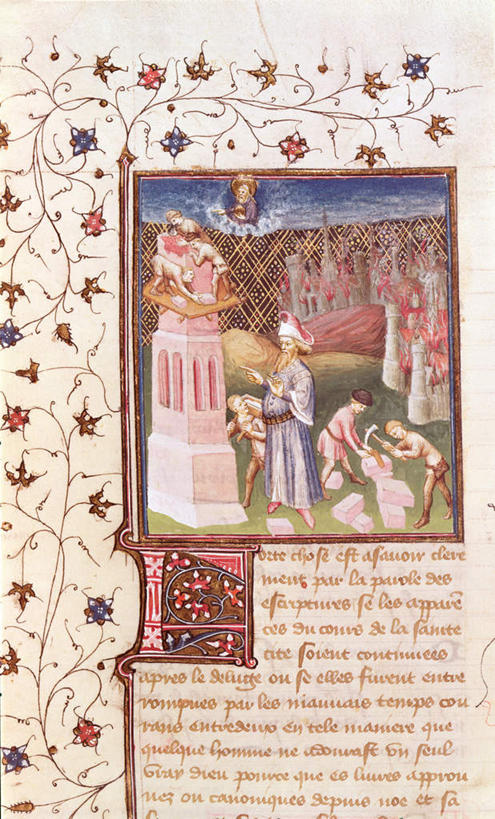 Forte chose est asauoir clere
ment par la parole des
escriptures se les apparē
ces du cours de la sainte
cite soient continuees
apres le deluge ou se elles furent entre
rompues par les mauuais temps cou
rans entredeux en tele maniere que
quelque homme ne adourast vn seul
vray dieu pource que es liures approu
uez ou canoniques depuis noe et sa